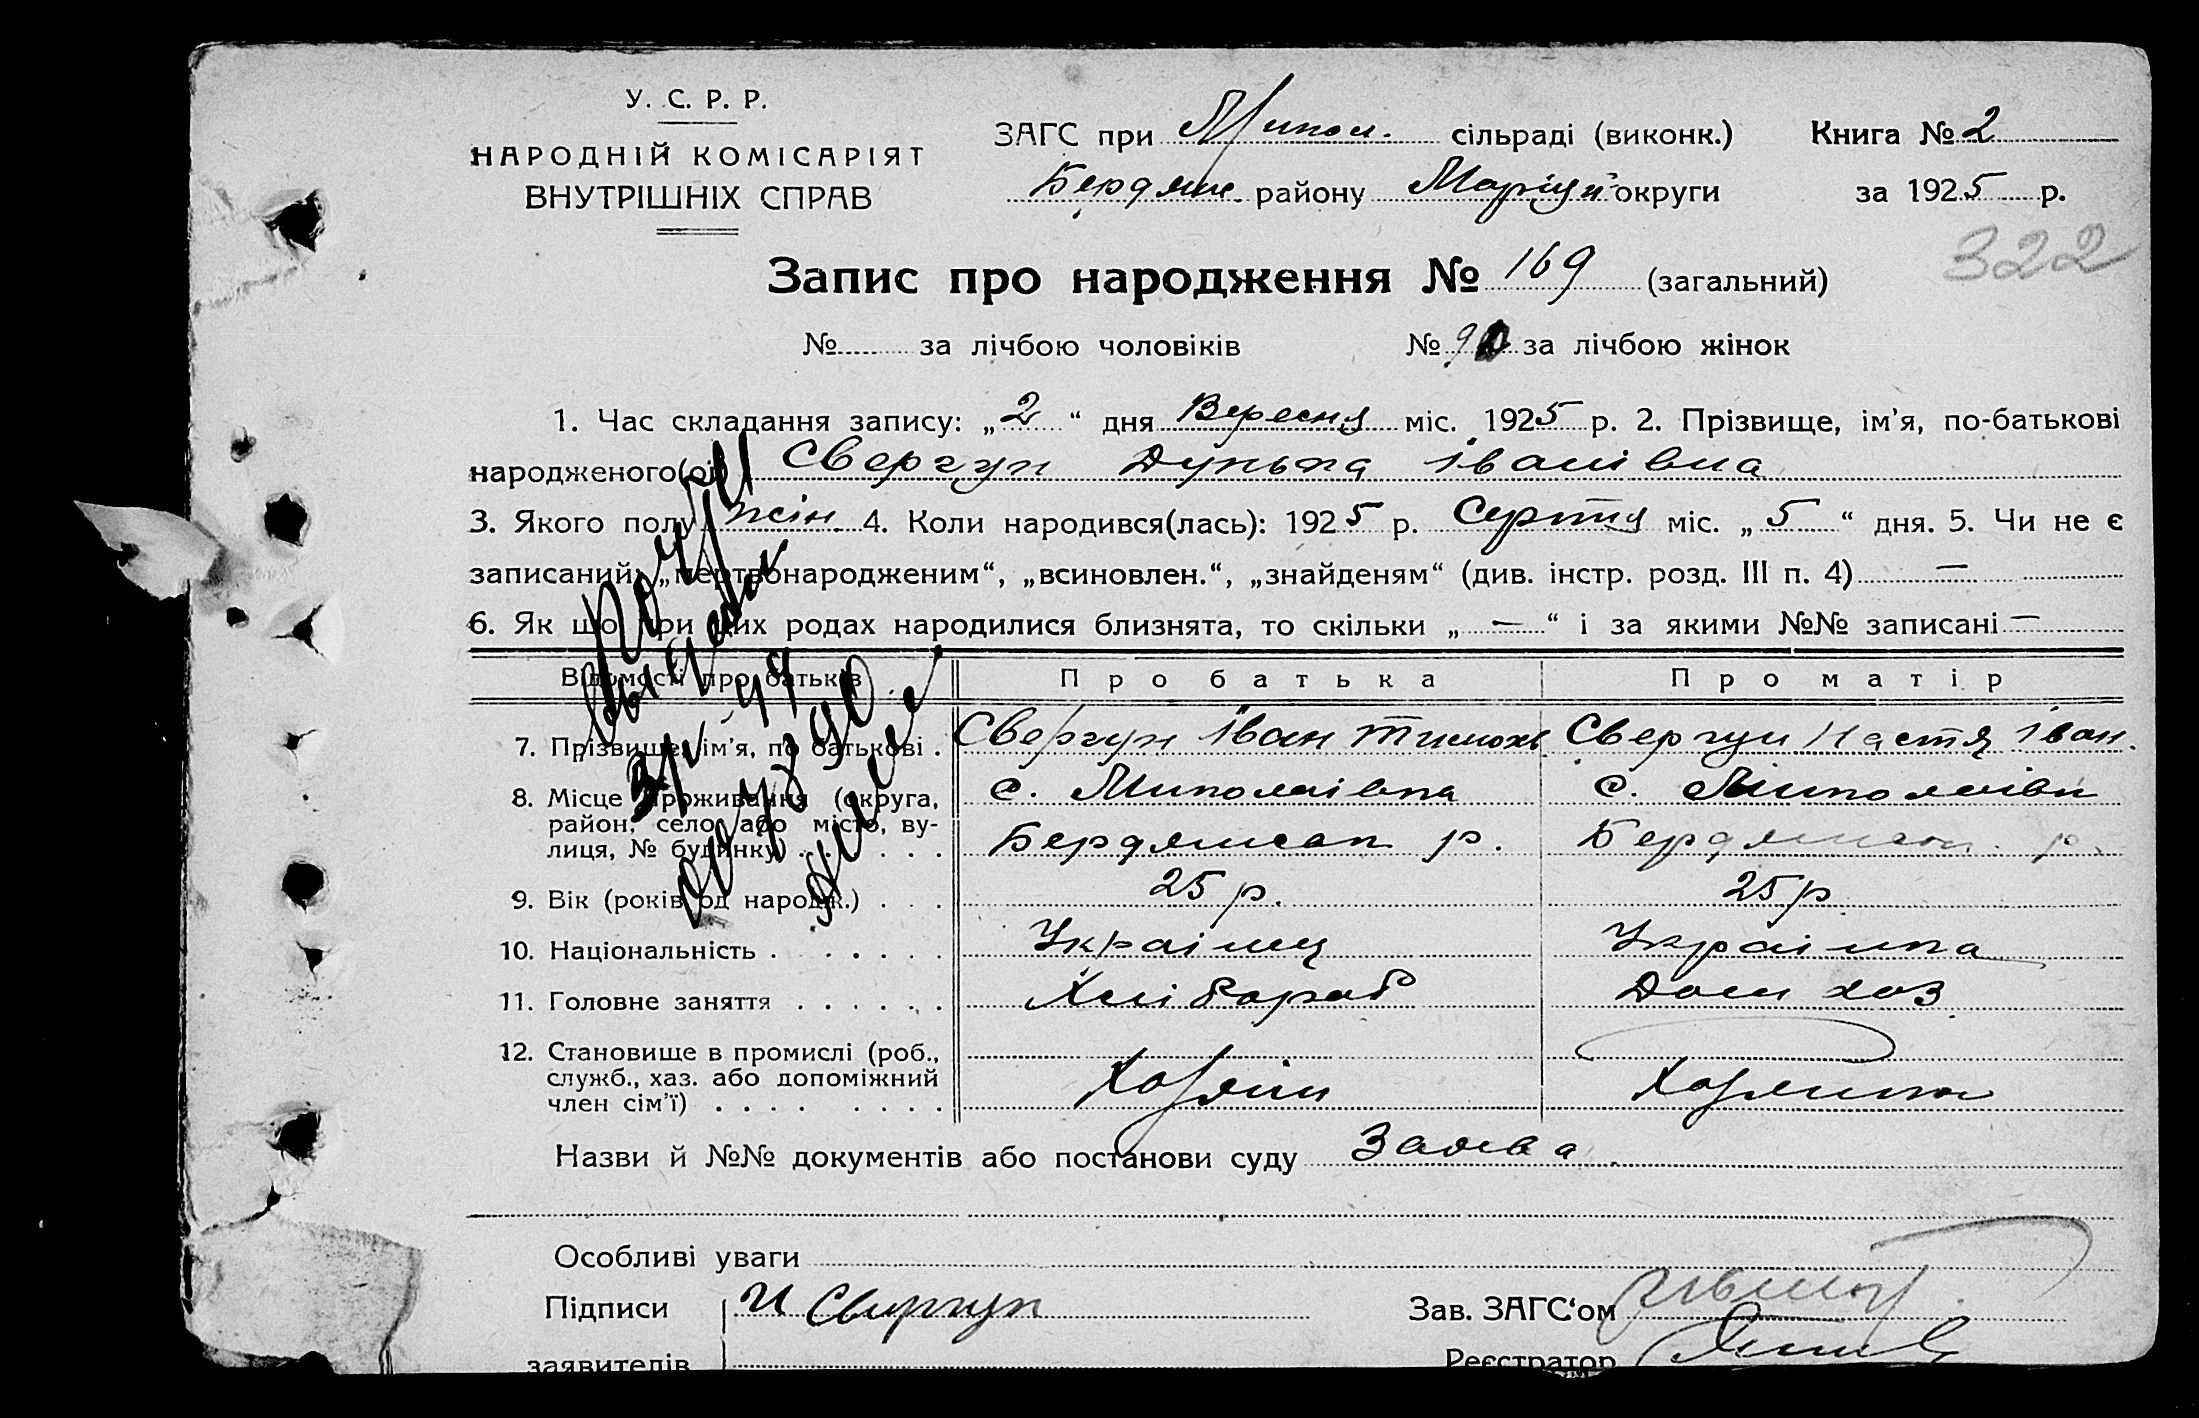 У. С. Р. Р.
НАРОДНІЙ КОМІСАРІЯТ
ВНУТРІШНІХ СПРАВ
ЗАГС при Микол. сільраді (виконк.) Книга № 2
Бердянк. району Маріуп. округи за 1925 р.
322
Запис про народження № 169 (загальний)
№ за лічбою чоловіків № 90 за лічбою жінок
1. Час складання запису: „2“ дня Вересня міс. 1925 р. 2. Прізвище, ім’я, по-батькові
народженого(ої) Свергун Дунька Іванівна
3. Якого полу жін. 4. Коли народився(лась): 1925 р. Серпня міс. „5“ дня. 5. Чи не є
записаний: „мертвонародженим“, „всиновлен.“, „знайденям“ (див. інстр. розд. III п. 4) —
6. Як що при цих родах народилися близнята, то скільки „—“ і за якими №№ записані —
Відомості про батьків Про батька Про матір
7. Прізвище, ім’я, по батькові . Свергун Іван Тимох Свергун Настя Іван.
8. Місце проживання (округа, с. Миколаівка с. Миколаівк
район, село або місто, ву-
лиця, № будинку) . . . . . . Бердянськ р. Бердянськ. р.
9. Вік (років од народж.) . . . 25 р. 25 р
10. Національність . . . . . . . Українц Українка
11. Головне заняття . . . . . . Хлібороб Дом хоз
12. Становище в промислі (роб.,
служб., хаз. або допоміжний Хазяін Хазяйка
член сім’ї) . . . . . . . .
Назви й №№ документів або постанови суду Заява.
Особливі уваги
Підписи И Свиргун Зав. ЗАГС‘ом
заявителів Реєстратор